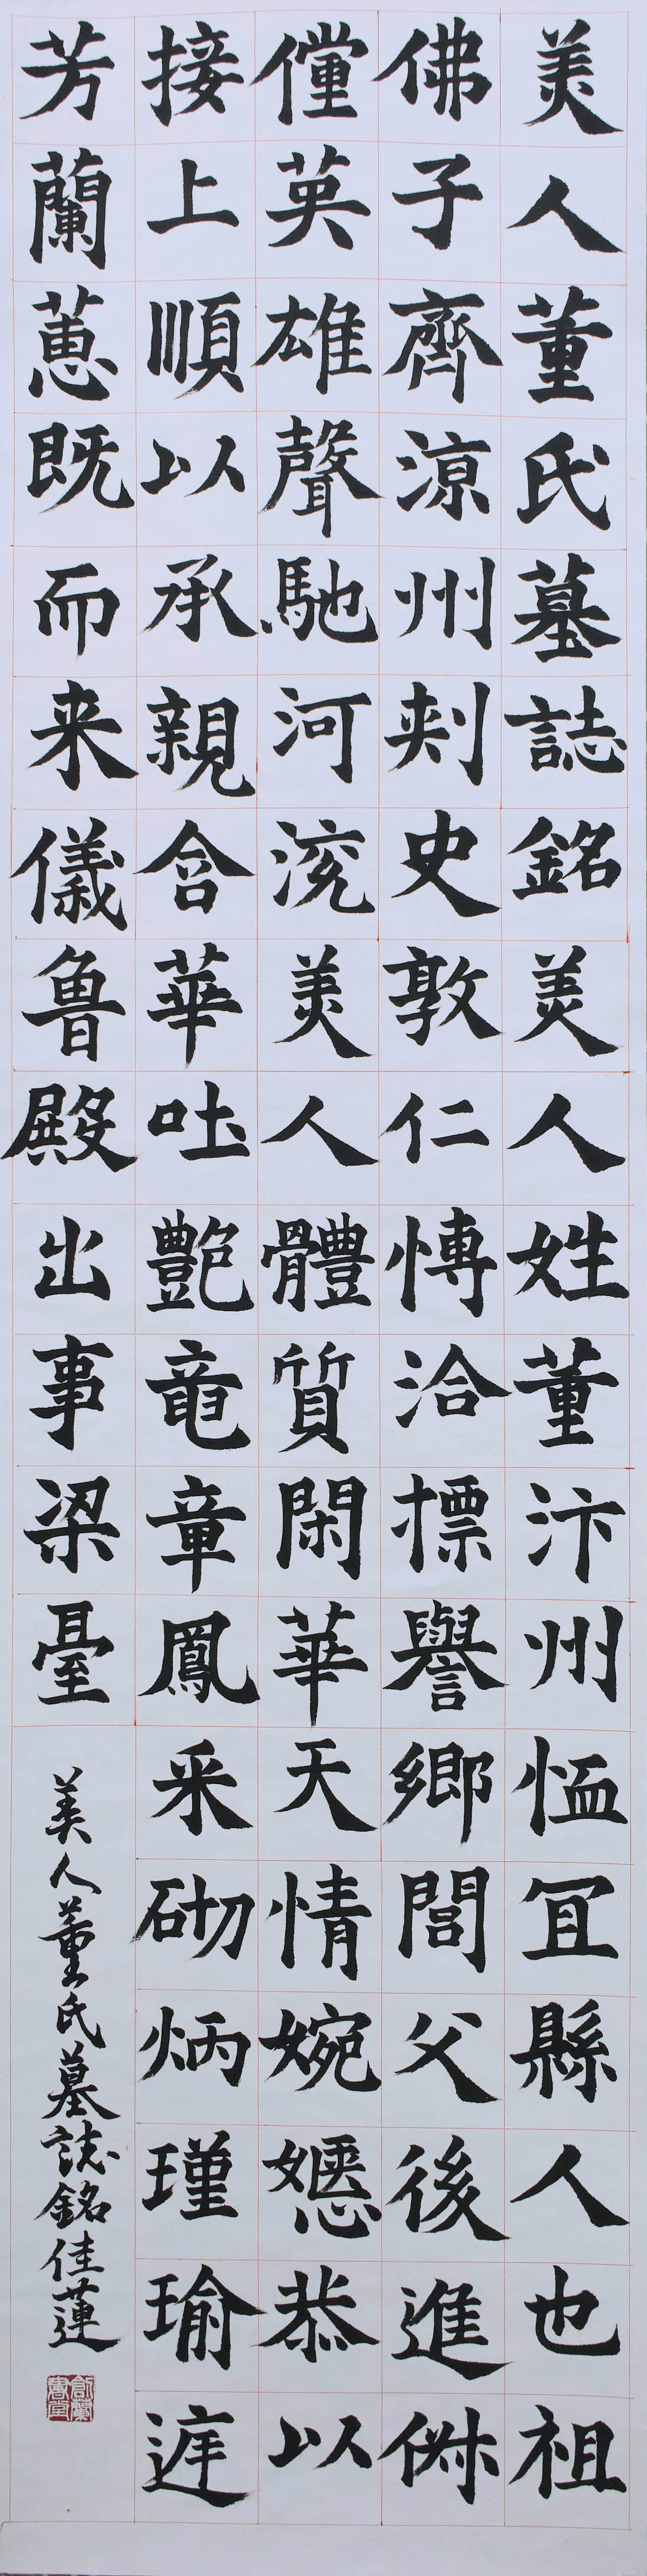 美人董氏墓誌銘美人姓董汴州恤冝縣人也祖
佛子齊涼州刾史敦仁愽洽標譽鄉閭父後進俶
儻英雄聲馳河渷美人體質閑華天情婉嫕恭以
接上順以承親含華吐艷竜章鳳采砌炳瑾瑜遅
芳蘭蕙既而来儀魯殿出事梁臺
美人董氏墓誌銘佳蓮